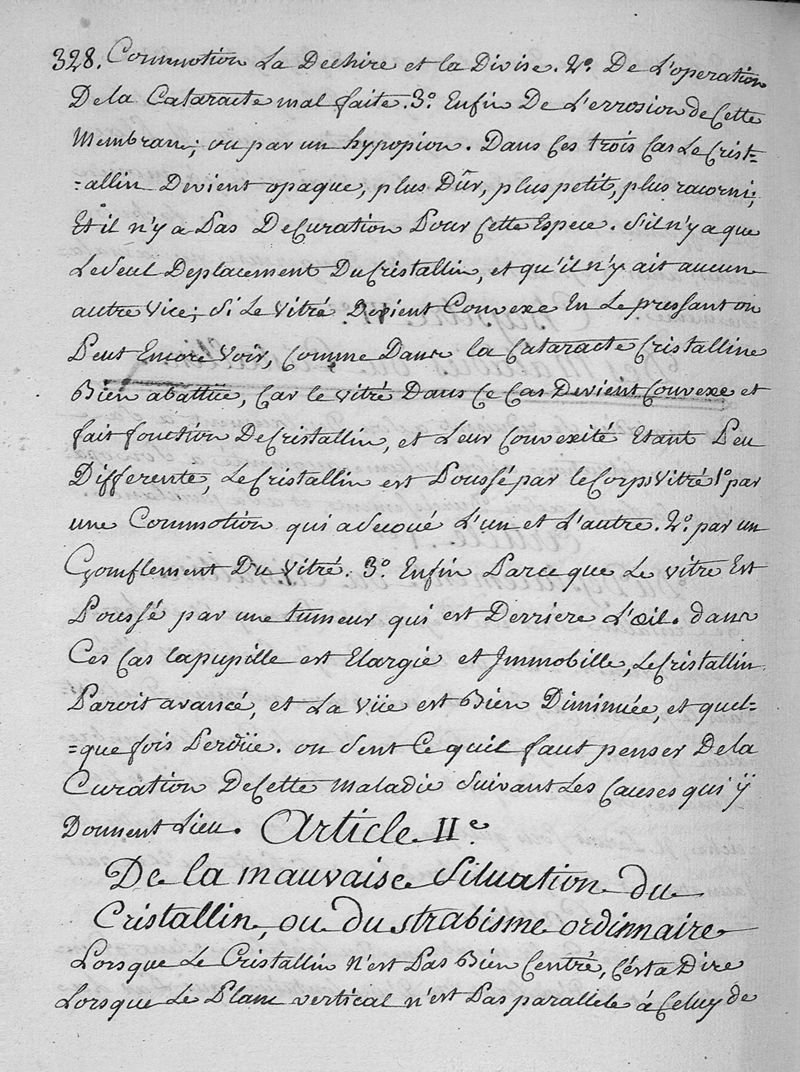 328. Commotion La Dechire et la Divise. 2º De L'operation
De la Cataracte mal faite. 3º Enfin De L'errosion de Cette
Membran; ou par un hypopion. Dans Ces trois Cas Le Crist=
=allin Devient opaque, plus Dûr, plus petit, plus racorni;
Et il n'y a Pas De Curation Pour Cette Espece. S'il n'y a que
Le Seul Deplacement Du Cristallin, et qu'il n'y ait aucun
autre vice; Si Le vitré Devient Convexe En Le pressant on
Peut Encore Voir, Comme Dans la Cataracte Cristalline
Bien abattüe, Car le vitré Dans Ce Cas Devient Convexe et
fait fonction De Cristallin, et Leur Convexité Etant Peu
Differente, Le Cristallin est Poussé par le Corps Vitré 1º par
une Commotion qui a Secoué L'un et L'autre. 2º par un
Gomflement Du Vitré. 3º Enfin Parce que Le vitré Est
Poussé par une tumeur qui est Derriere L'œil. dans
Ces Cas la pupille est Elargie et Immobille, Le Cristallin
Paroit avancé, et La Vüe est Bien Diminuée, et quel=
=que fois Perdüe. on Sent Ce quil faut penser De la
Curation De Cette Maladie Suivant Les Causes qui ÿ
Donnent Lieu. Article II.e
De la mauvaise Situation du
Cristallin, ou du strabisme ordinnaire
Lorsque Le Cristallin N'est Pas Bien Centré, C'ést a Dire
Lorsque Le Plan vertical n'est Pas parallele à Celuy de